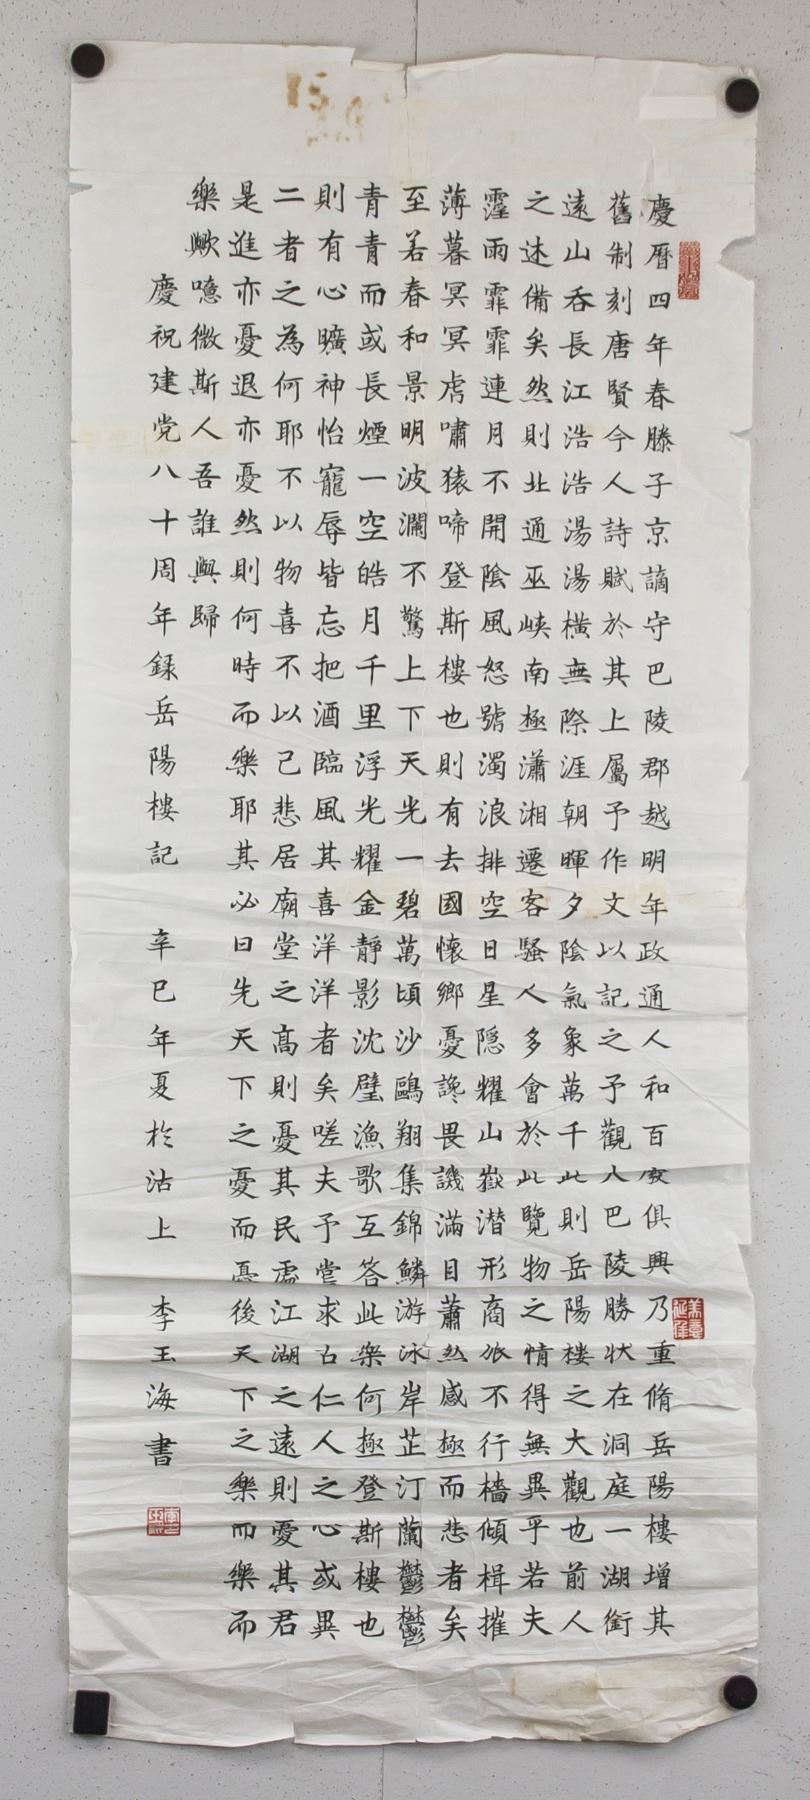 慶曆四年春滕子京謫守巴陵郡越明年政通人和百廢俱興乃重脩岳陽樓增其
舊制刻唐賢今人詩賦於其上屬予作文以記之予觀夫巴陵勝狀在洞庭一湖銜
遠山吞長江浩浩湯湯橫無際涯朝暉夕陰氣象萬千此則岳陽樓之大觀也前人
之述備矣然則北通巫峽南極瀟湘遷客騷人多會於此覽物之情得無異乎若夫
霪雨霏霏連月不開陰風怒號濁浪排空日星隱耀山嶽潜形商旅不行檣傾楫摧
薄暮冥冥虎嘯猿啼登斯樓也則有去國懷鄉憂讒畏譏滿目蕭然感極而悲者矣
至若春和景明波瀾不驚上下天光一碧萬頃沙鷗翔集錦鱗游泳岸芷汀蘭鬱鬱
青青而或長煙一空皓月千里浮光耀金靜影沈璧漁歌互答此樂何極登斯樓也
則有心曠神怡寵辱皆忘把酒臨風其喜洋洋者矣嗟夫予嘗求古仁人之心或異
二者之為何耶不以物喜不以己悲居廟堂之高則憂其民處江湖之遠則憂其君
是進亦憂退亦憂然則何時而樂耶其必曰先天下之憂而憂後天下之樂而樂而
樂歟噫微斯人吾誰與歸
慶祝建党八十周年錄岳陽樓記 辛巳年夏於沽上 李玉海書